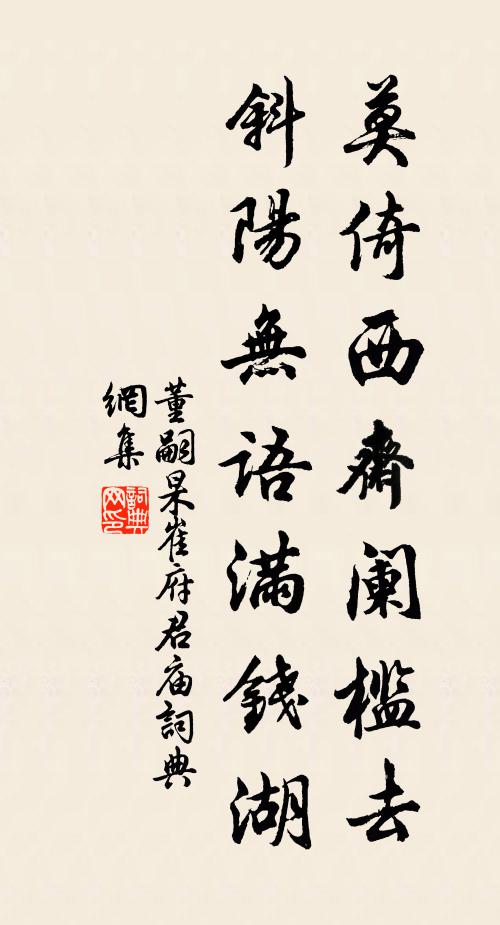 莫倚西齋闌檻去
斜陽無語滿錢湖
董嗣杲崔府君庙詞典
網集
詞典
网印